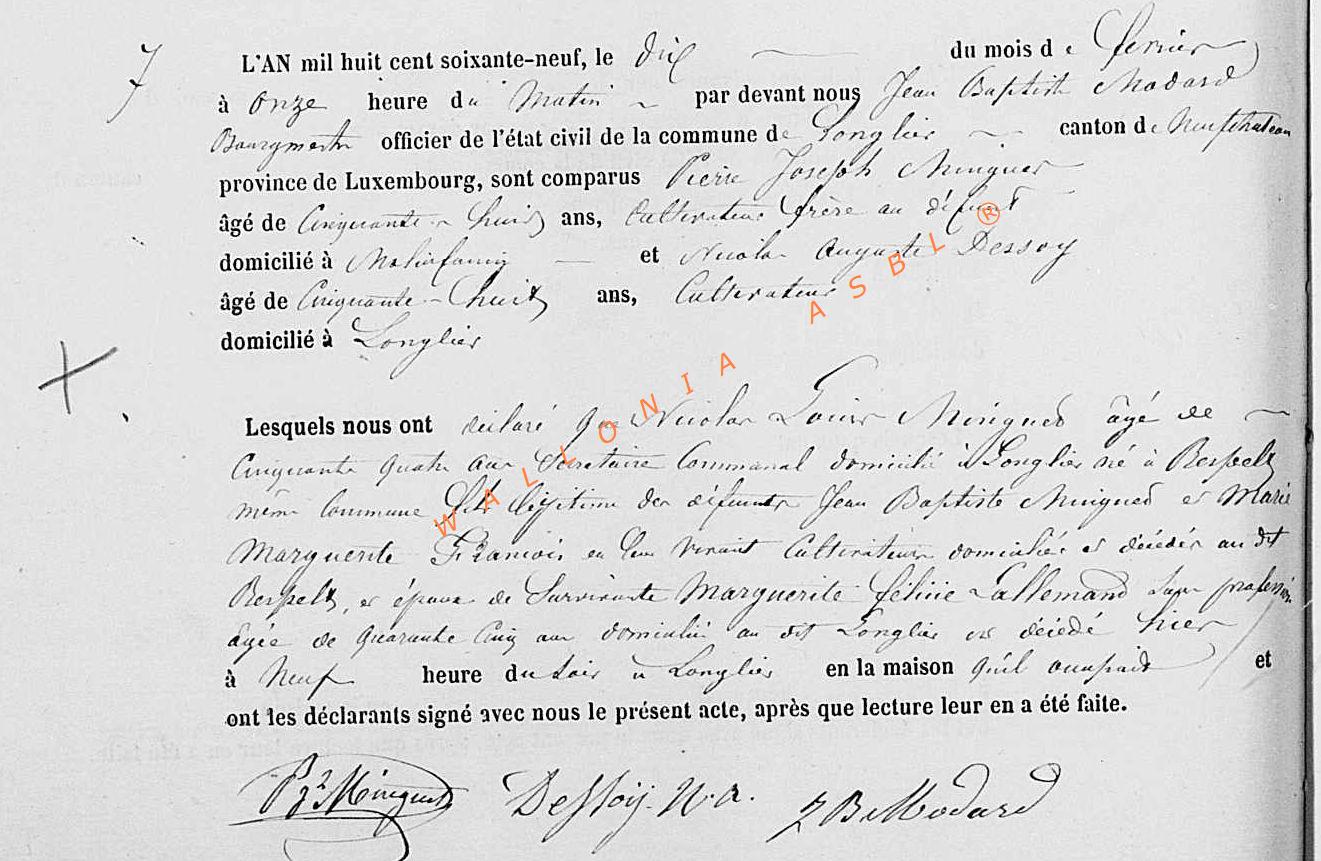 7
L'AN mil huit cent soixante-neuf, le dix du mois de février
à onze heure du Matin par devant nous Jean Baptiste Modard
Bourgmestre officier de l'état civil de la commune de Longlier canton de Neufchateau
province de Luxembourg, sont comparus Pierre Joseph Minguet
âgé de Cinquante-huit ans, Cultivateur frère au défunt
domicilié à Molinfaing et Nicolas Auguste Dessoy
âgé de Cinquante-huit ans, Cultivateur
domicilié à Longlier
WALLONIA ASBL ®
Lesquels nous ont déclaré que Nicolas Louis Minguet âgé de
Cinquante quatre ans Secretaire Communal domicilié à Longlier né à Respelt
même Commune fils légitime des défunts Jean Baptiste Minguet et Marie
Marguerite François en leur vivant Cultivateurs domiciliés et décédés au dit
Respelt, et époux de Survivante Marguerite féline Lallemand sans profession
agée de Quarante Cinq ans domiciliée au dit Longlier est décédé hier
à Neuf heure du soir à Longlier en la maison qu'il occupait et
ont les déclarants signé avec nous le présent acte, après que lecture leur en a été faite.
Minguet Dessoy N.A. JB Modard